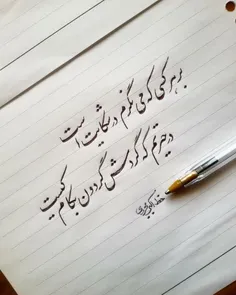 بر هر کسی که می نگرم در شکایت است
در حیرتم که گردش گردون بکام کیست